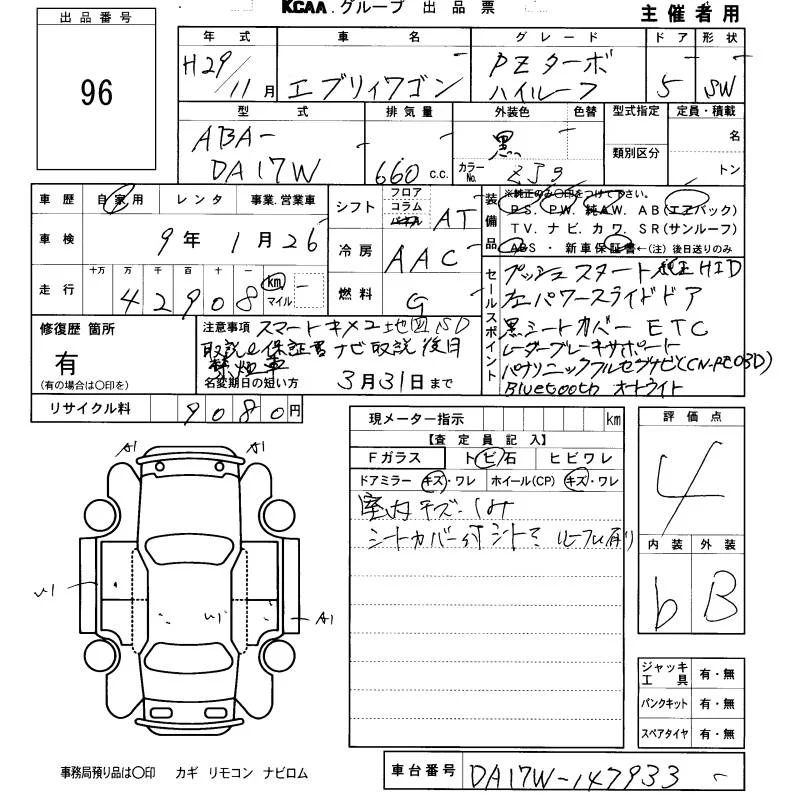 KCAA.グループ 出品票
主催者用
出品番号
96
年式 車名 グレード ドア 形状
H29/11月 エブリィワゴン PZターボ ハイルーフ 5 SW
型式 排気量 外装色 色替 型式指定 定員・積載
ABA- DA17W 660 c.c. 黒 カラーNo. ZJ3 類別区分 名 トン
車歴 自家用 レンタ 事業.営業車
車検 9年1月26
走行 十万 万 千 百 十 一
42908 km マイル
シフト フロア コラム パネル AT
冷房 AAC
燃料 G
装備品 ※純正のみ〇印をつけて下さい。
PS. PW. 純AW. AB(エアバック)
TV. ナビ. カワ. SR(サンルーフ)
ABS ・ 新車保証書←(注) 後日送りのみ
セールスポイント
プッシュスタート 純正HID
左パワースライドドア
黒シートカバー ETC
レーダーブレーキサポート
パナソニックフルセグナビ(CN-RE03D)
Bluetooth オートライト
修復歴 箇所
有
(有の場合は〇印を)
注意事項 スマートキー×2 地図SD
取説 保証書 ナビ取説 後日
禁煙車
名変期日の短い方 3月31日まで
リサイクル料 9080円
現メーター指示 km
【査定員記入】
Fガラス トビ石 ヒビワレ
ドアミラー キズ・ワレ ホイール(CP) キズ・ワレ
室内キズ・
シートカバー付 シートシミ ルーフ 有り
評価点
4
内装 外装
b B
ジャッキ工具 有・無
パンクキット 有・無
スペアタイヤ 有・無
A1 A1
A1
事務局預り品は〇印 カギ リモコン ナビロム
車台番号 DA17W-147933